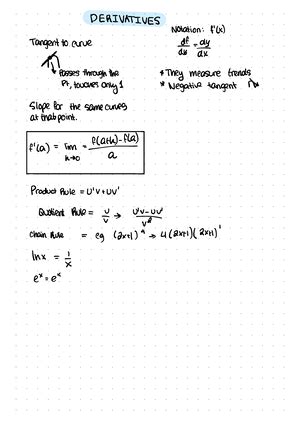 DERIVATIVES
Notation: f'(x)
df/dx = dy/dx
Tangent to curve
↳ Passes through the
Pt, touches only 1
* They measure trends
* Negative tangent
Slope for the same curves
at that point.
f'(a) = lim h→0 = f(a+h)-f(a) / a
Product Rule = U'V+UV'
Quotient Rule = U/V → U'V-UV'/V²
Chain Rule = eg (2x+1)⁴ → 4(2x+1)(2x+1)'
lnx = 1/x
eˣ = eˣ